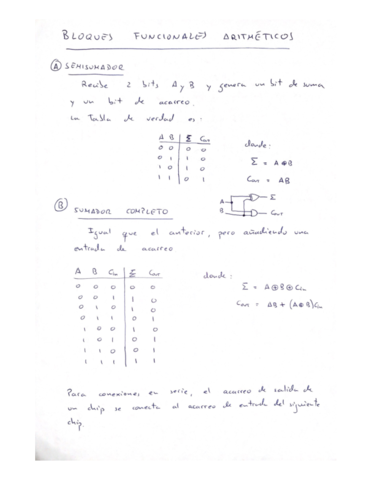 BLOQUES FUNCIONALES ARITMÉTICOS
A SEMISUMADOR
Recibe 2 bits A y B y genera un bit de suma
y un bit de acarreo.
La Tabla de verdad es:
A B Σ Cout
0 0 0 0
0 1 1 0
1 0 1 0
1 1 0 1
donde:
Σ = A⊕B
Cout = AB
A Σ
B Cout
B SUMADOR COMPLETO
Igual que el anterior, pero añadiendo una
entrada de acarreo
A B Cin Σ Cout
0 0 0 0 0
0 0 1 1 0
0 1 0 1 0
0 1 1 0 1
1 0 0 1 0
1 0 1 0 1
1 1 0 0 1
1 1 1 1 1
donde:
Σ = A⊕B⊕Cin
Cout = AB + (A⊕B)Cin
Para conexiones en serie, el acarreo de salida de
un chip se conecta al acarreo de entrada del siguiente
chip.